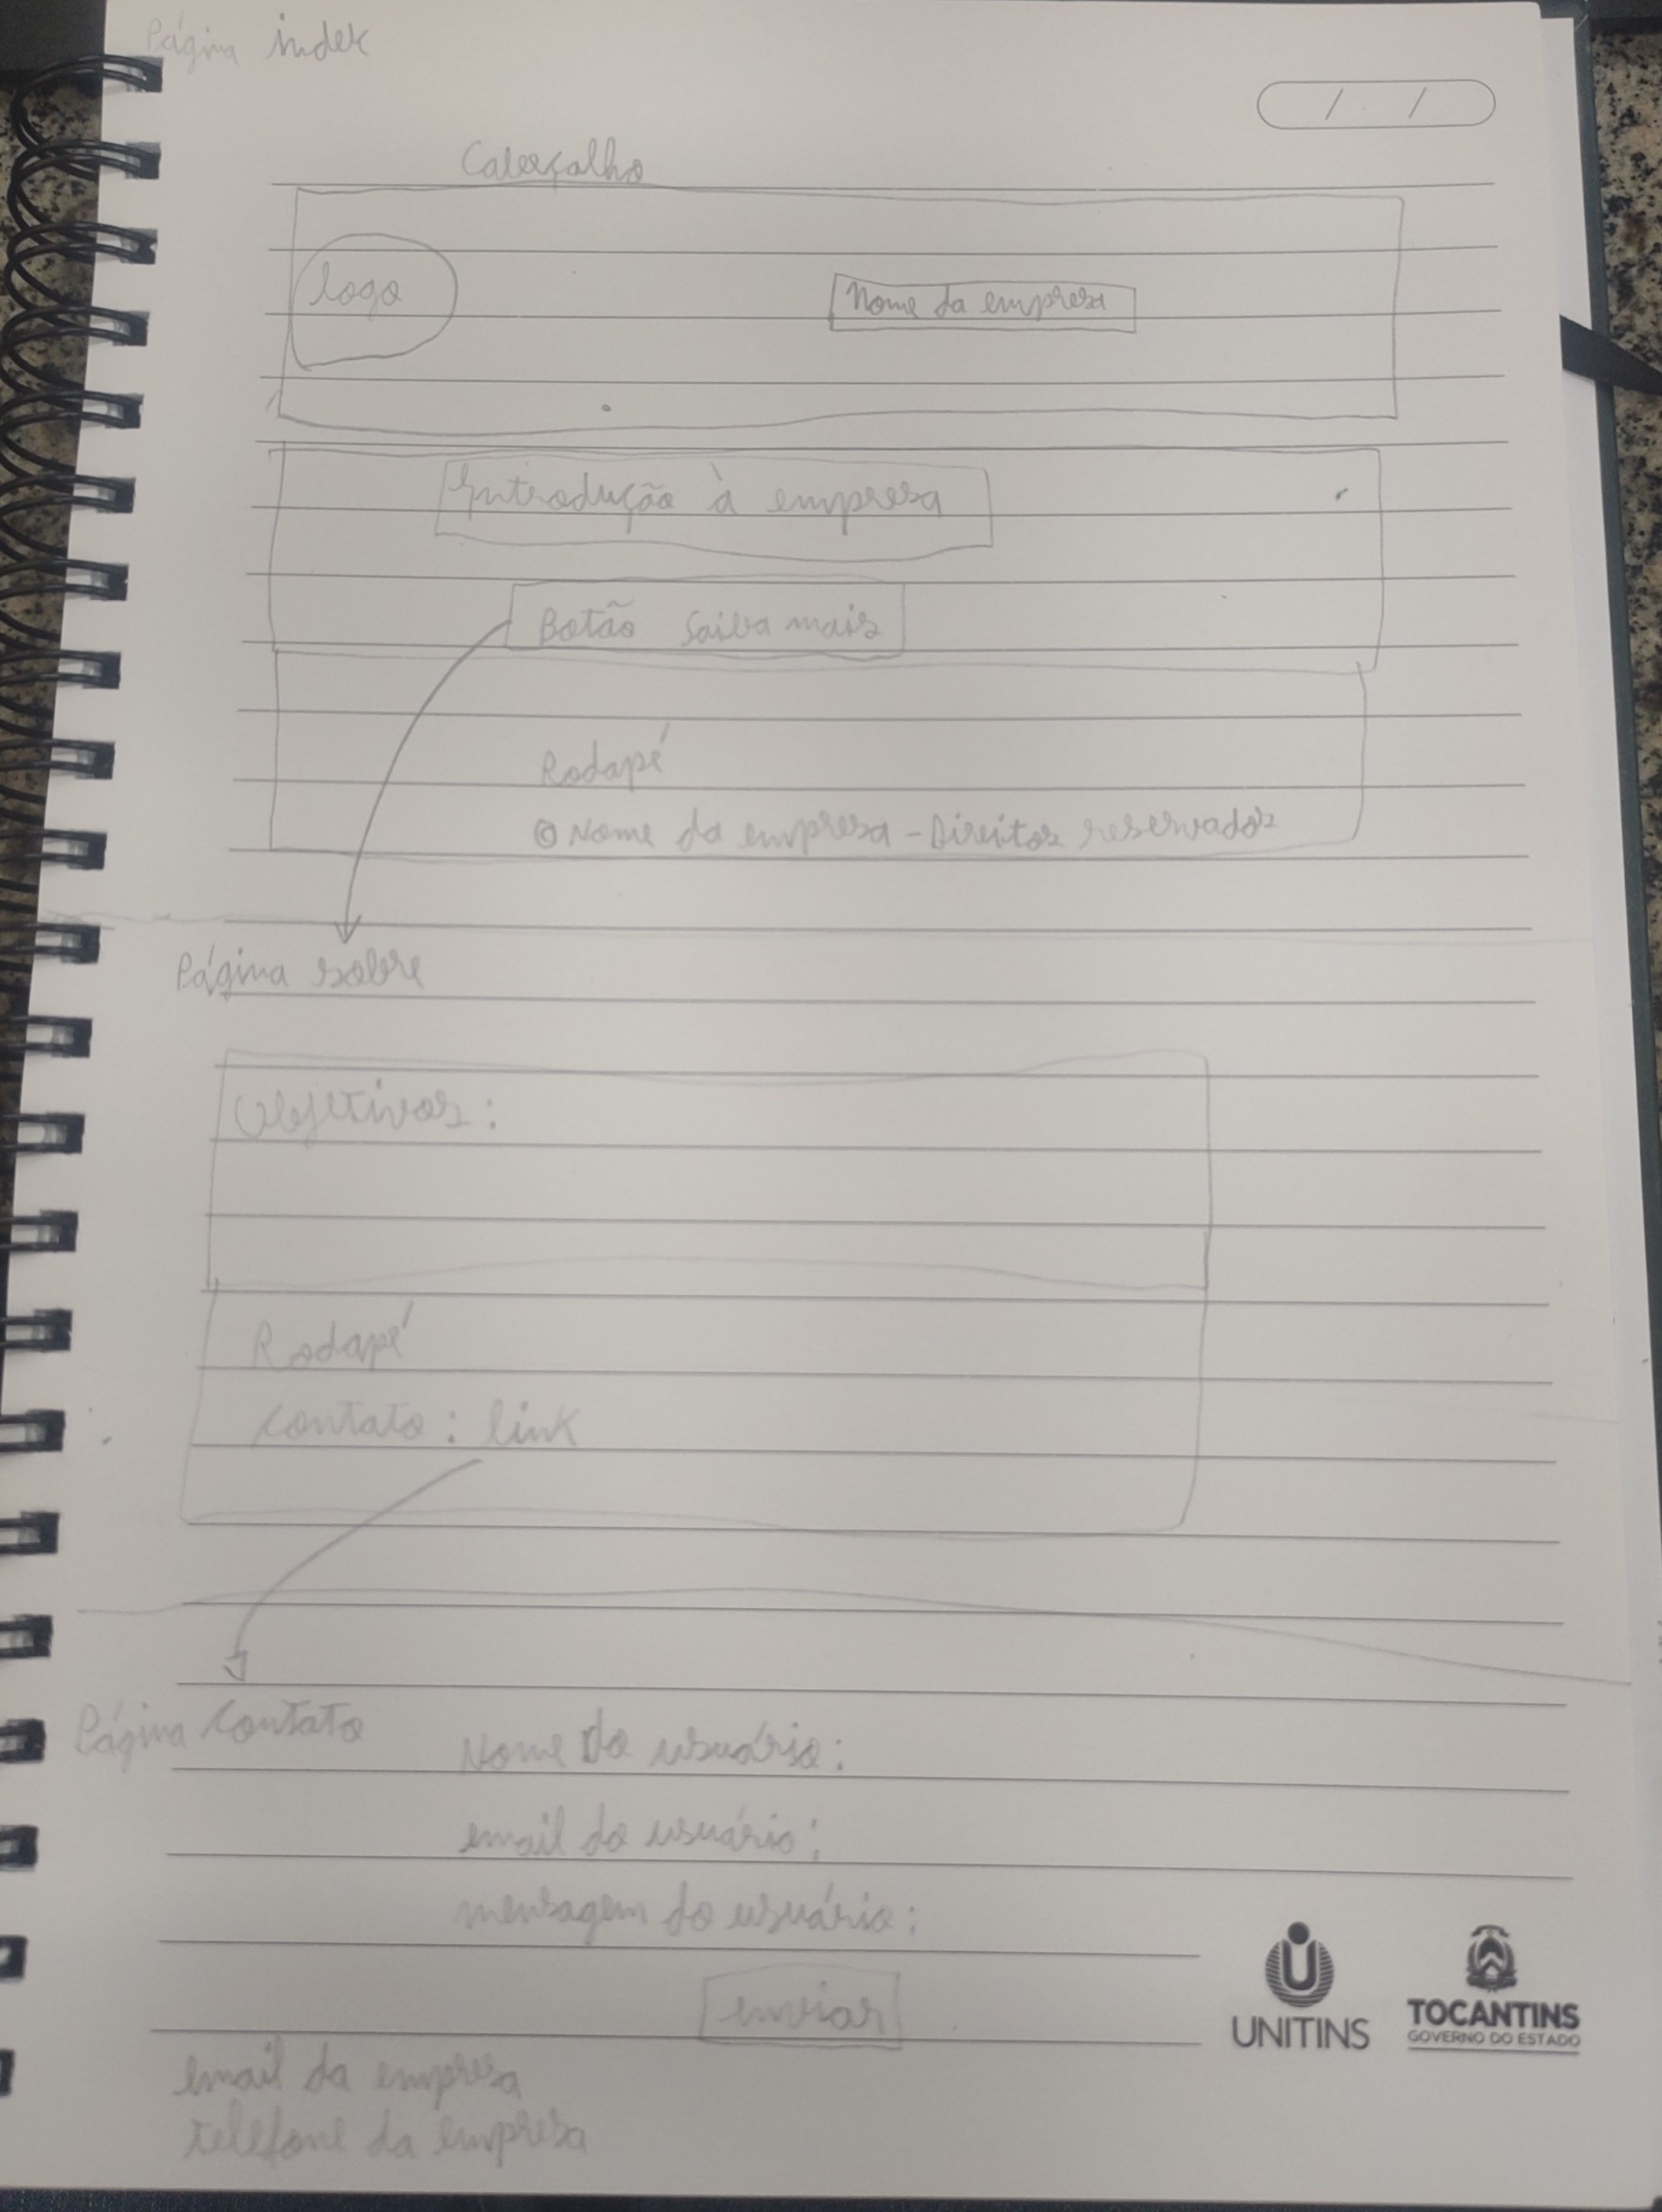 Página index
/ /
Cabeçalho
logo
Nome da empresa
Introdução à empresa
Botão Saiba mais
Rodapé
© Nome da empresa - Direitos reservados
Página sobre
Objetivos:
Rodapé
Contato: link
Página Contato
Nome do usuário:
email do usuário:
mensagem do usuário:
enviar
UNITINS
TOCANTINS
GOVERNO DO ESTADO
email da empresa
telefone da empresa